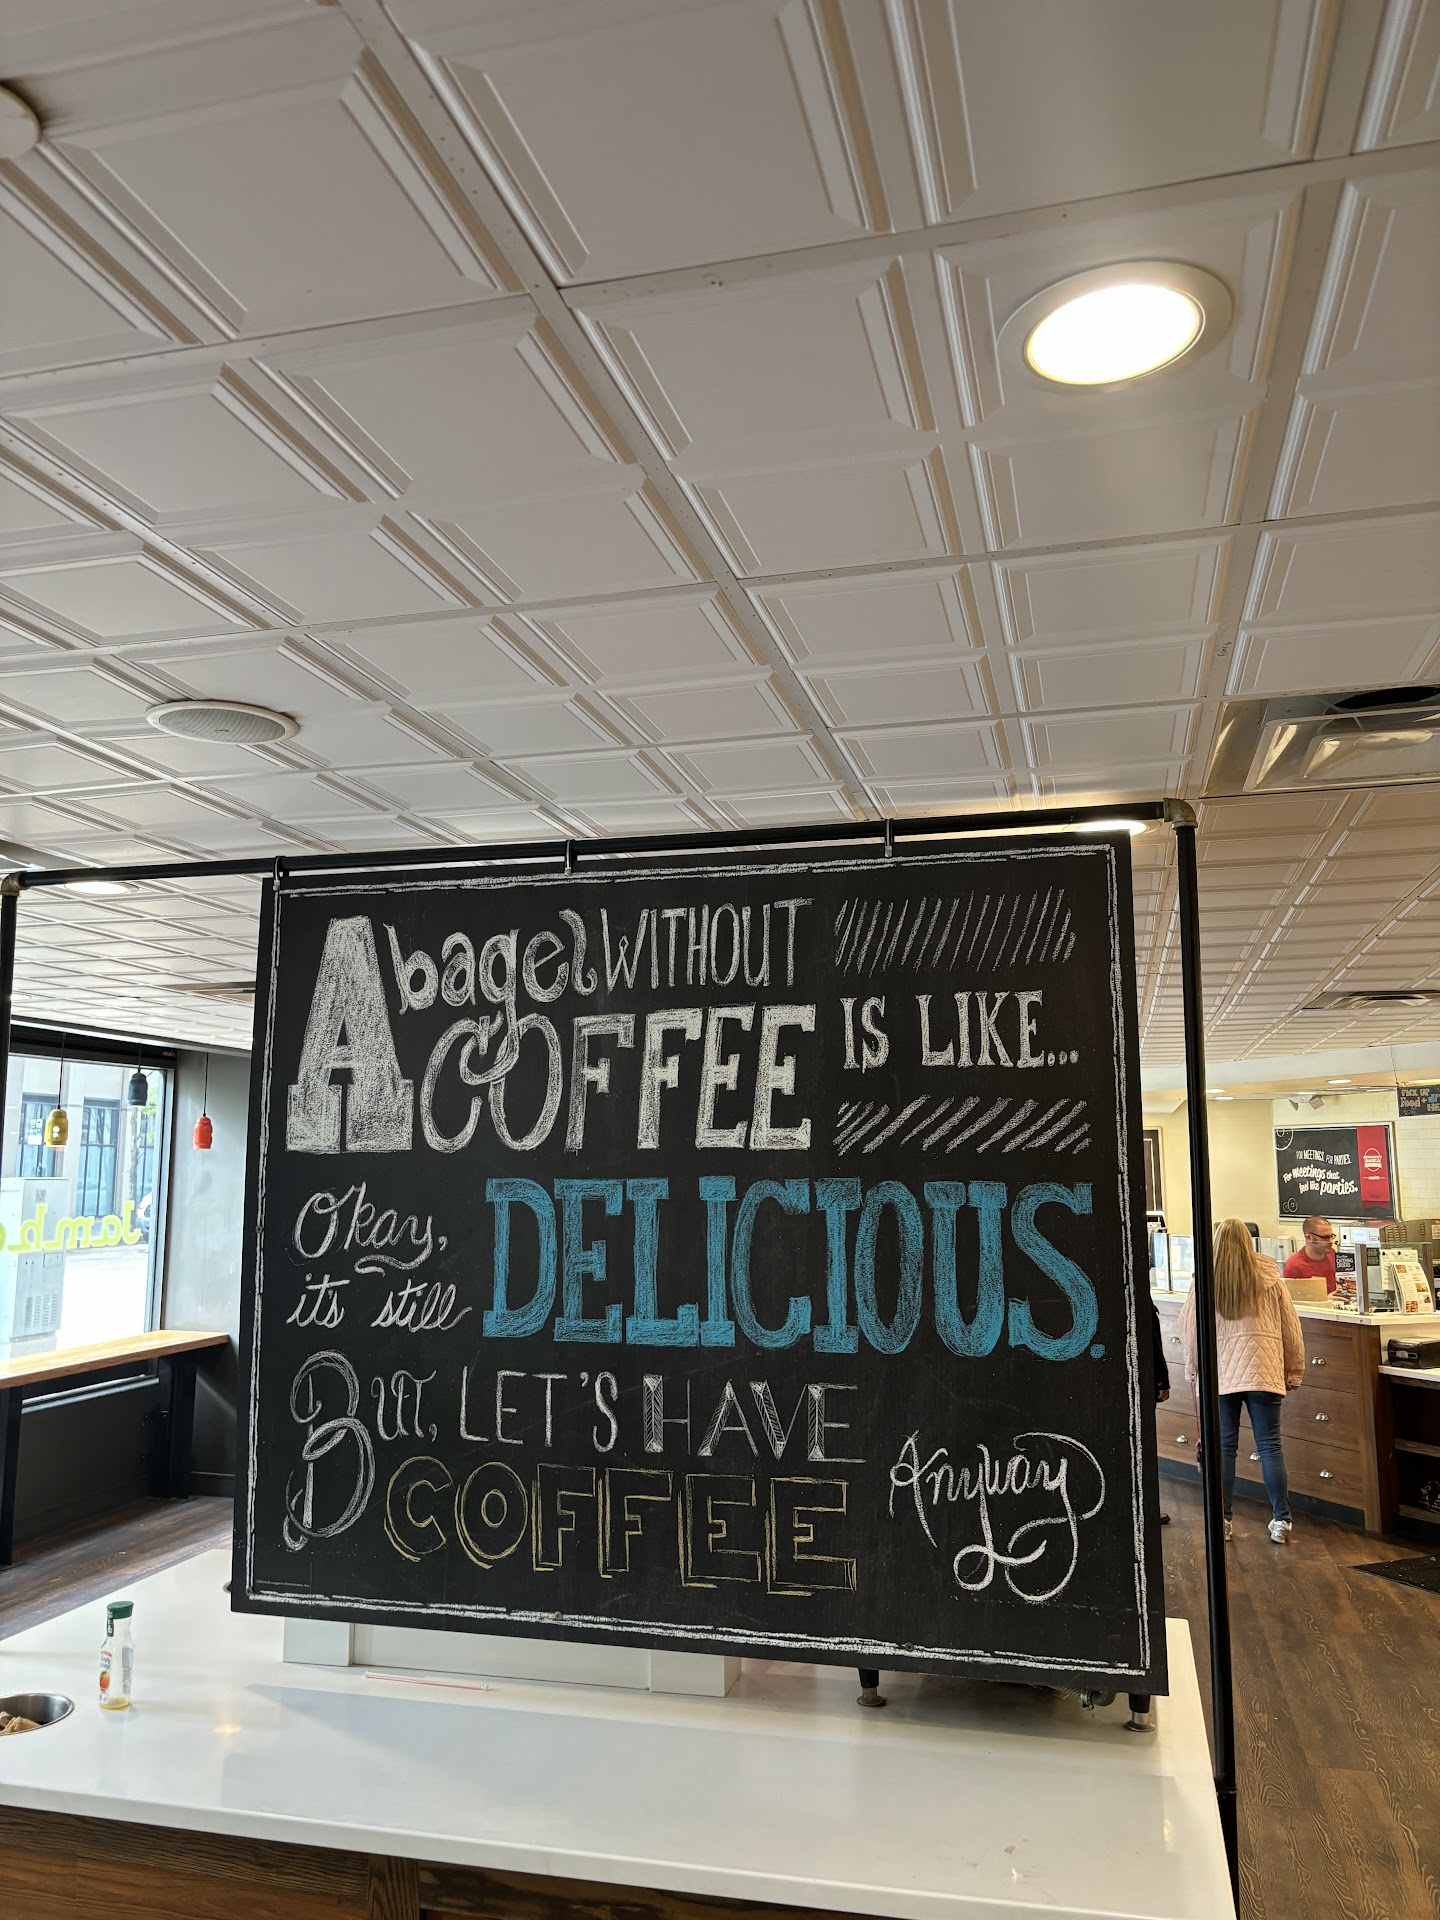 A bagel WITHOUT
COFFEE IS LIKE...
Okay,
it's still DELICIOUS.
BUT, LET'S HAVE
COFFEE Anyway
Jamba
FOR MEETINGS. FOR PARTIES.
For meetings that
feel like parties.
PICK UP
Food +
HE